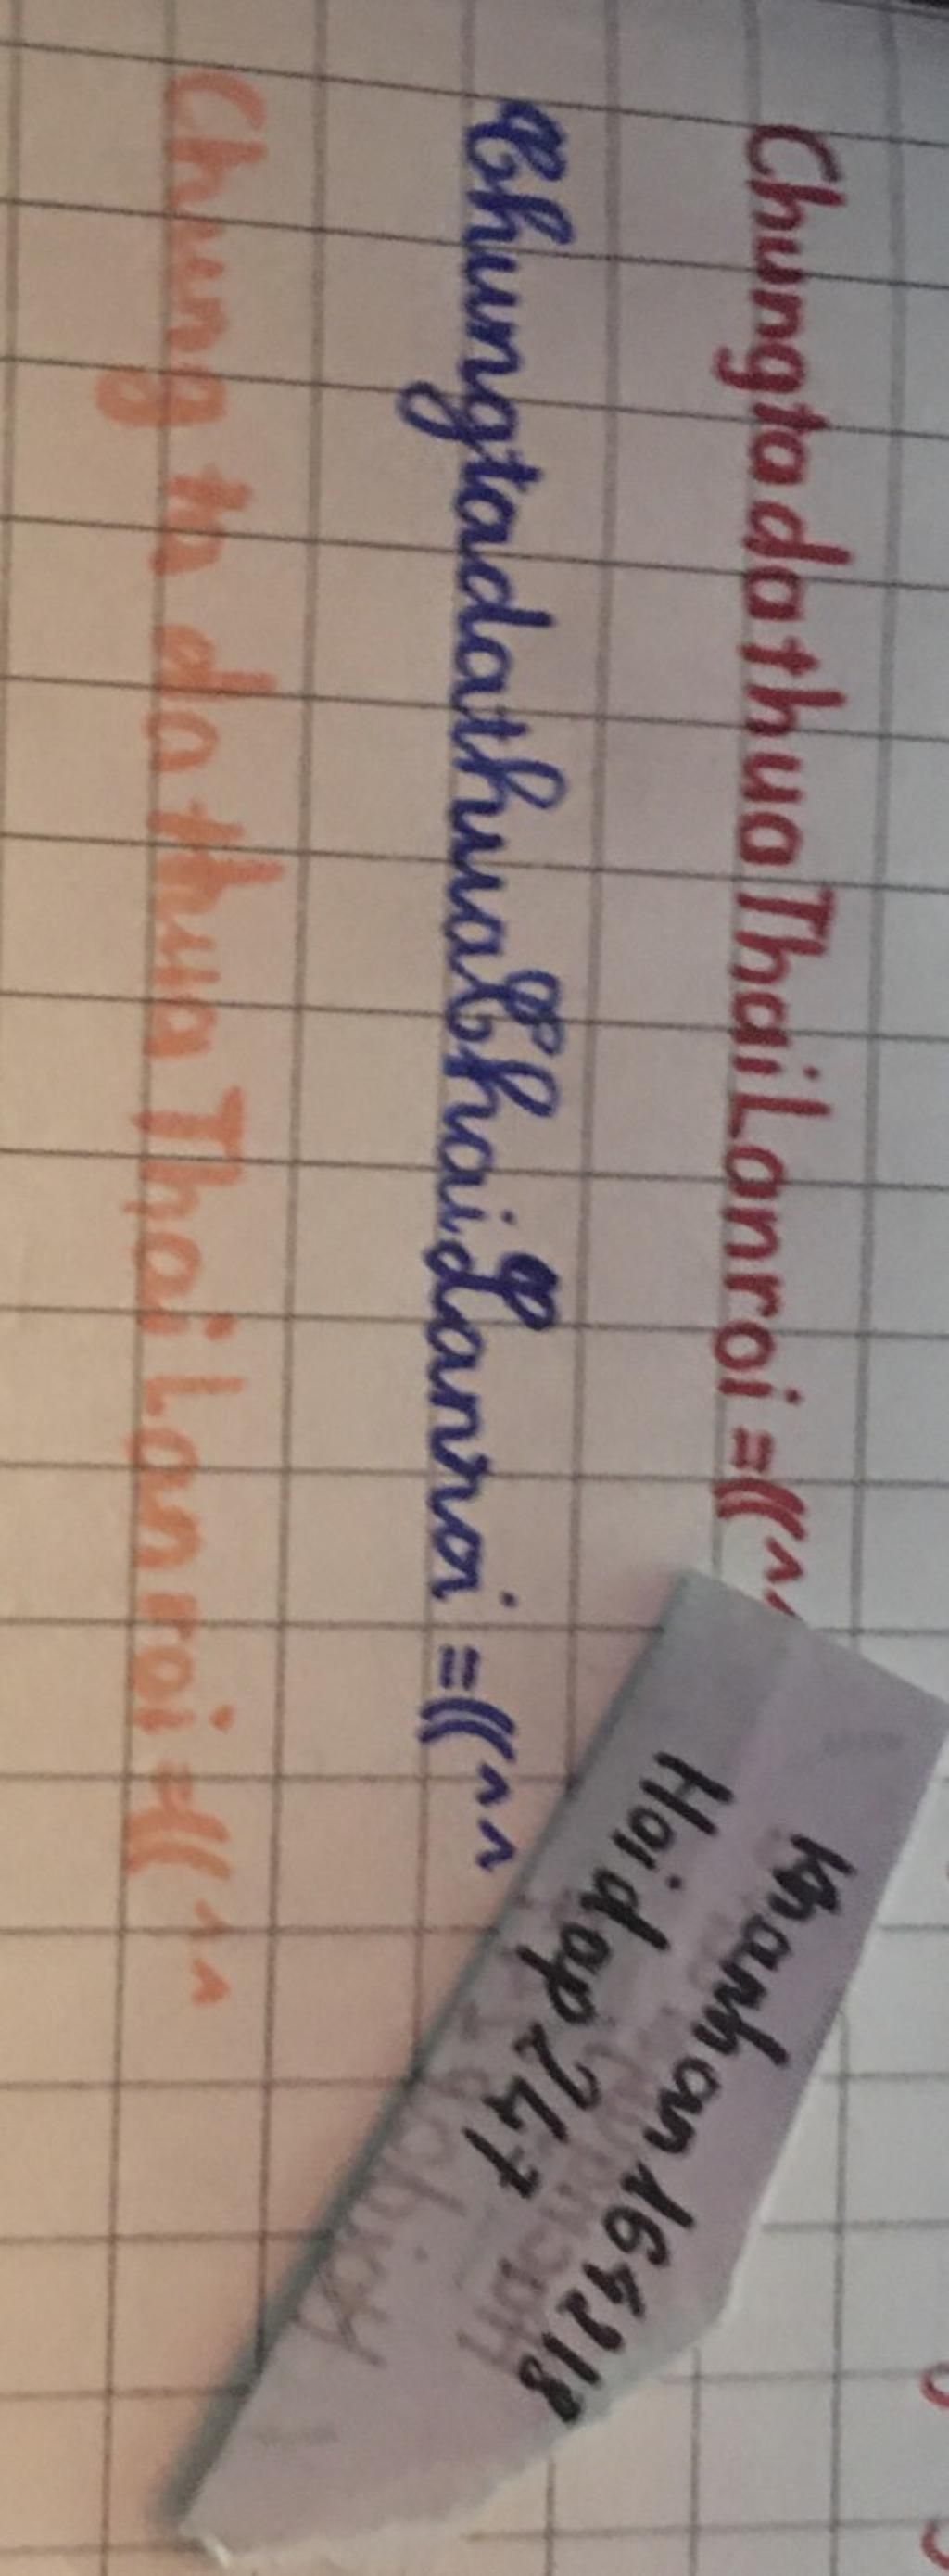 ChungtadathuaThaiLanroi =((^^
ChungtadathuaThaiLanroi =((^^
Chung ta da thua Thai Lan roi =((^^
khanhan164218
Hoidap247